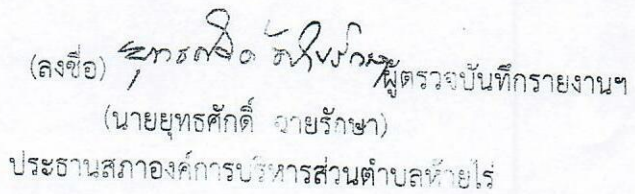 (ลงชื่อ) ผู้ตรวจบันทึกรายงานฯ
(นายยุทธศักดิ์ ฉายรักษา)
ประธานสภาองค์การบริหารส่วนตำบลห้วยไร่